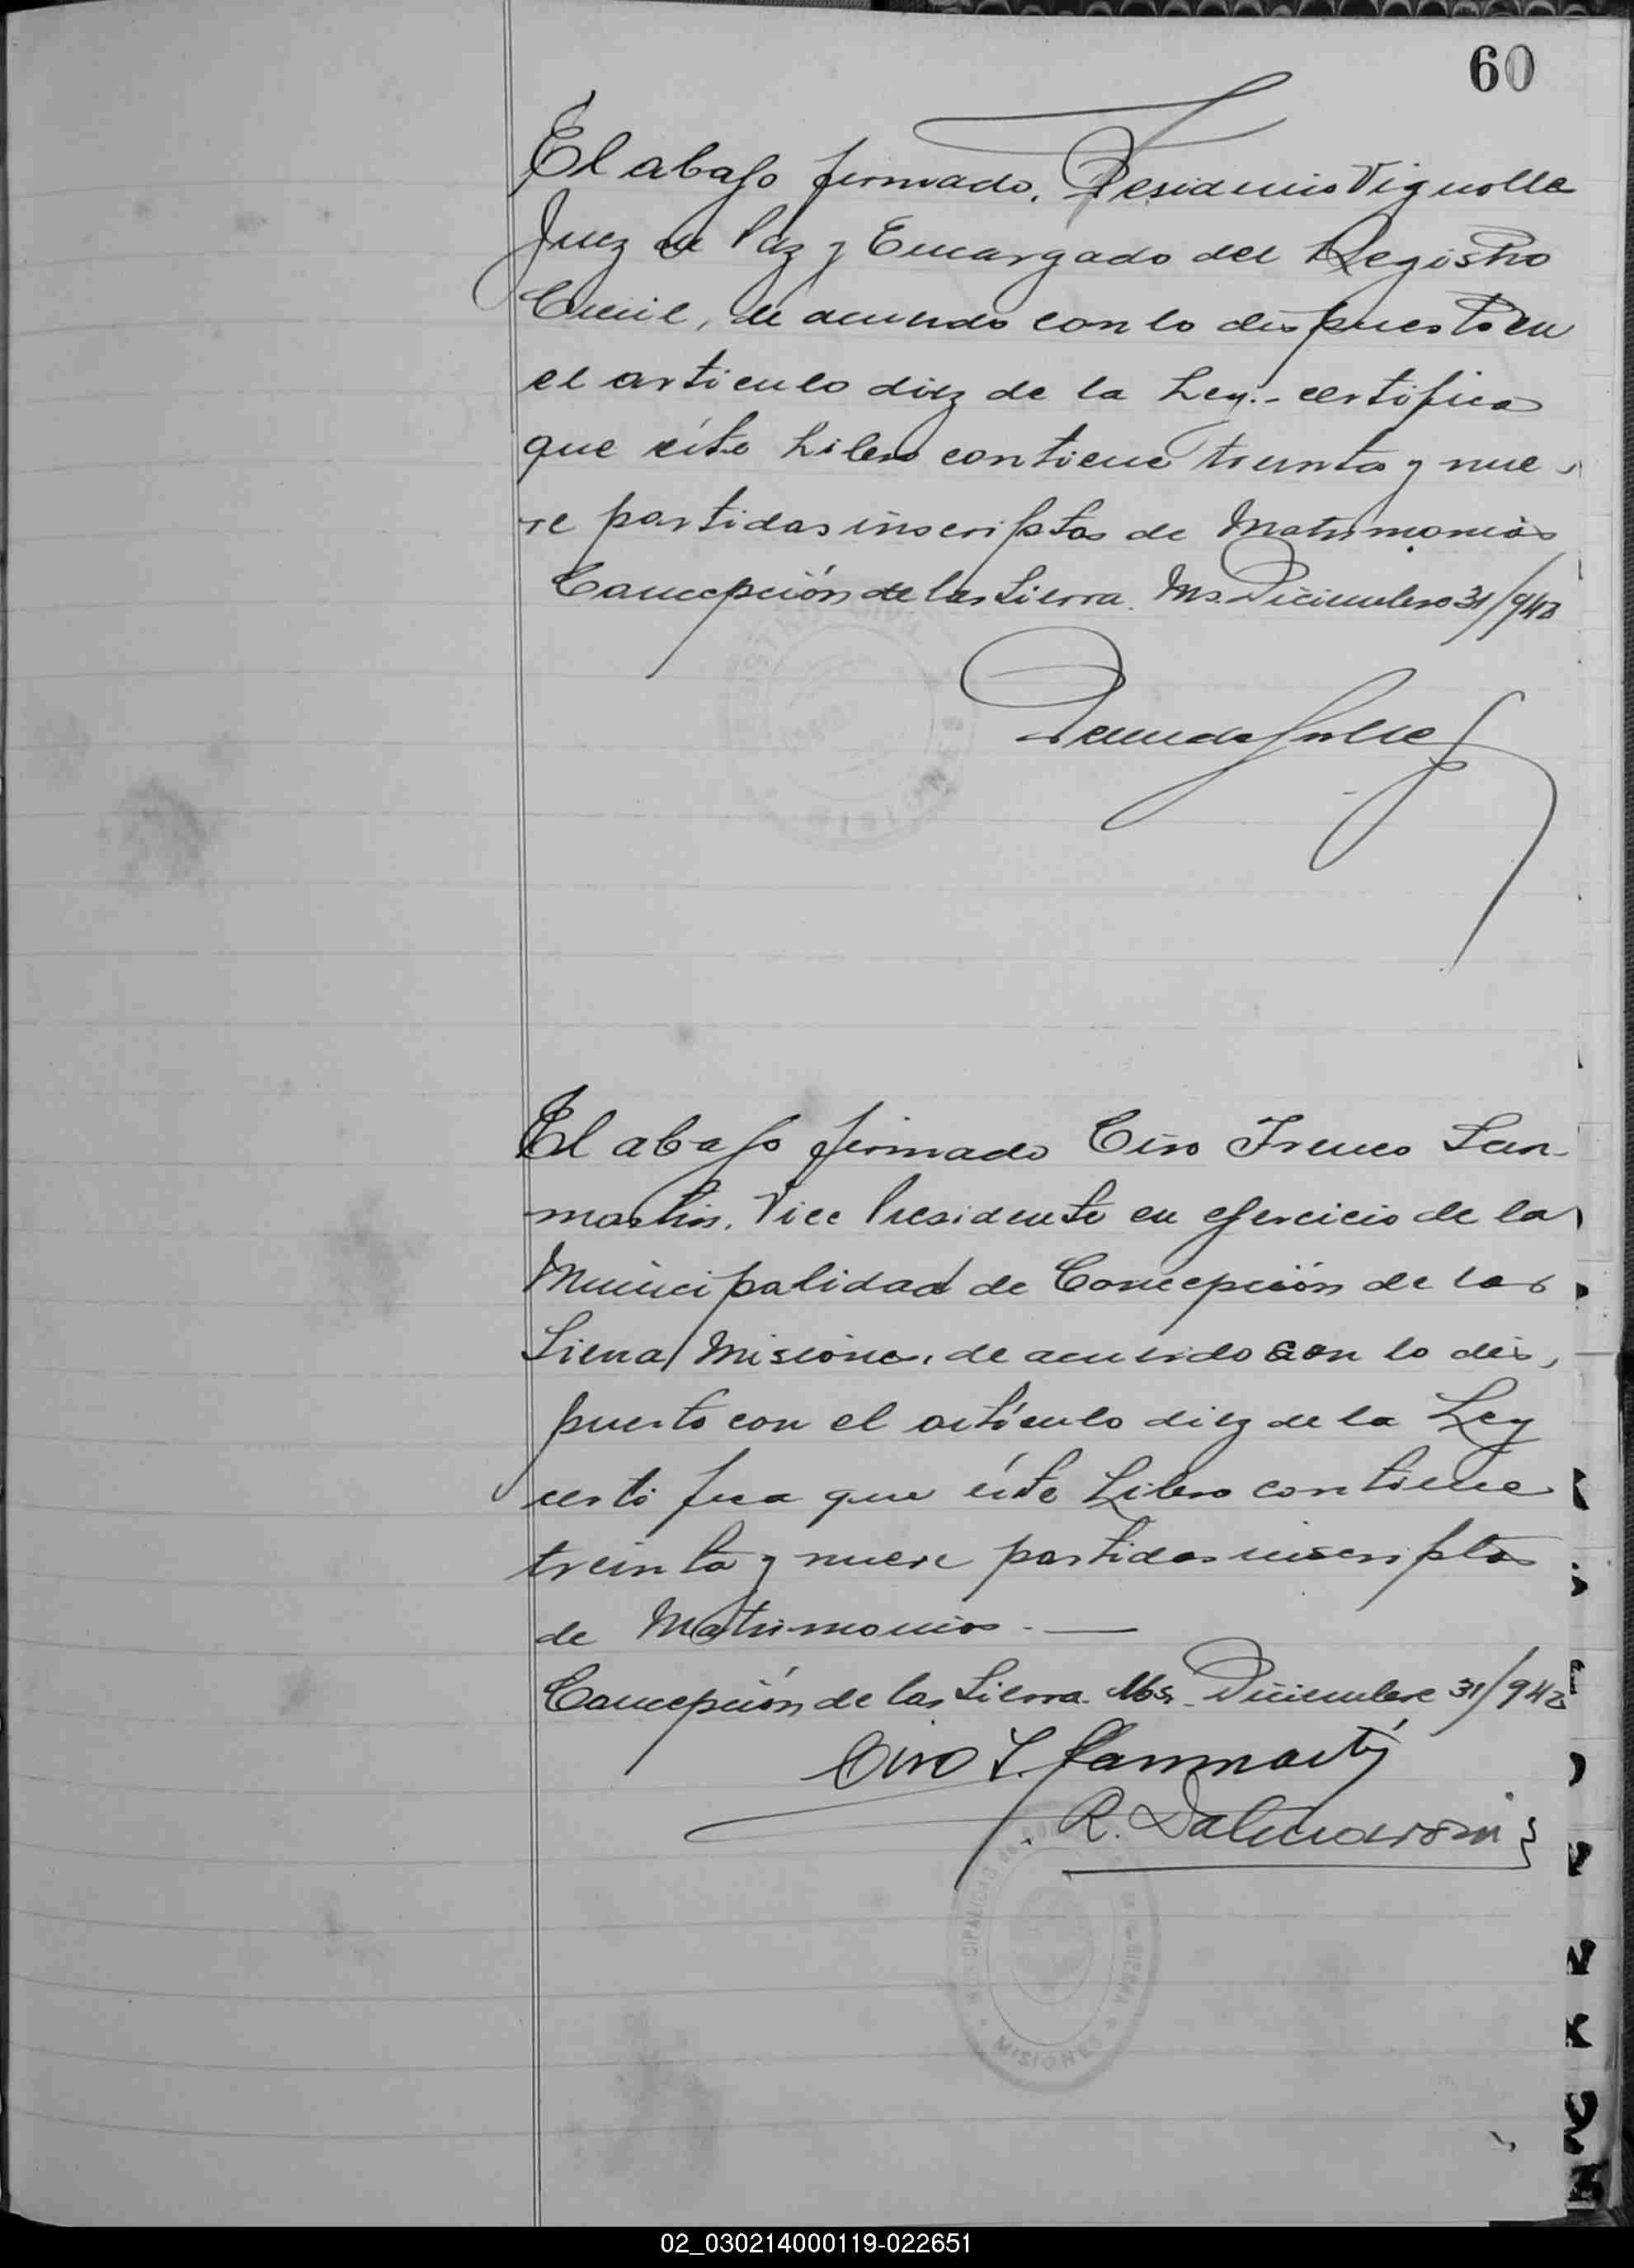 60
El abajo firmado, Vignolle
Juez de Paz y Encargado del Registro
Civil, de acuerdo con lo dispuesto en
el articulo diez de la Ley.- certifica
que éste Libro contiene treinta y nue-
ve partidas inscriptas de Matrimonios
Concepción de la Sierra. Ms. Diciembre 31/942
El abajo firmado Ciro Ireneo San-
martin, Vice Presidente en ejercicio de la
Municipalidad de Concepción de la
Sierra/Misiones, de acuerdo con lo dis,
puesto con el artículo diez de la Ley
certifica que éste Libro contiene
treinta y nueve partidas inscriptas
de Matrimonios.—
Concepción de la Sierra. Mos. Diciembre 31/942
Ciro I. Sanmartín
R.
MUNICIPALIDAD de
SIERRA
MISIONES
02_030214000119-022651